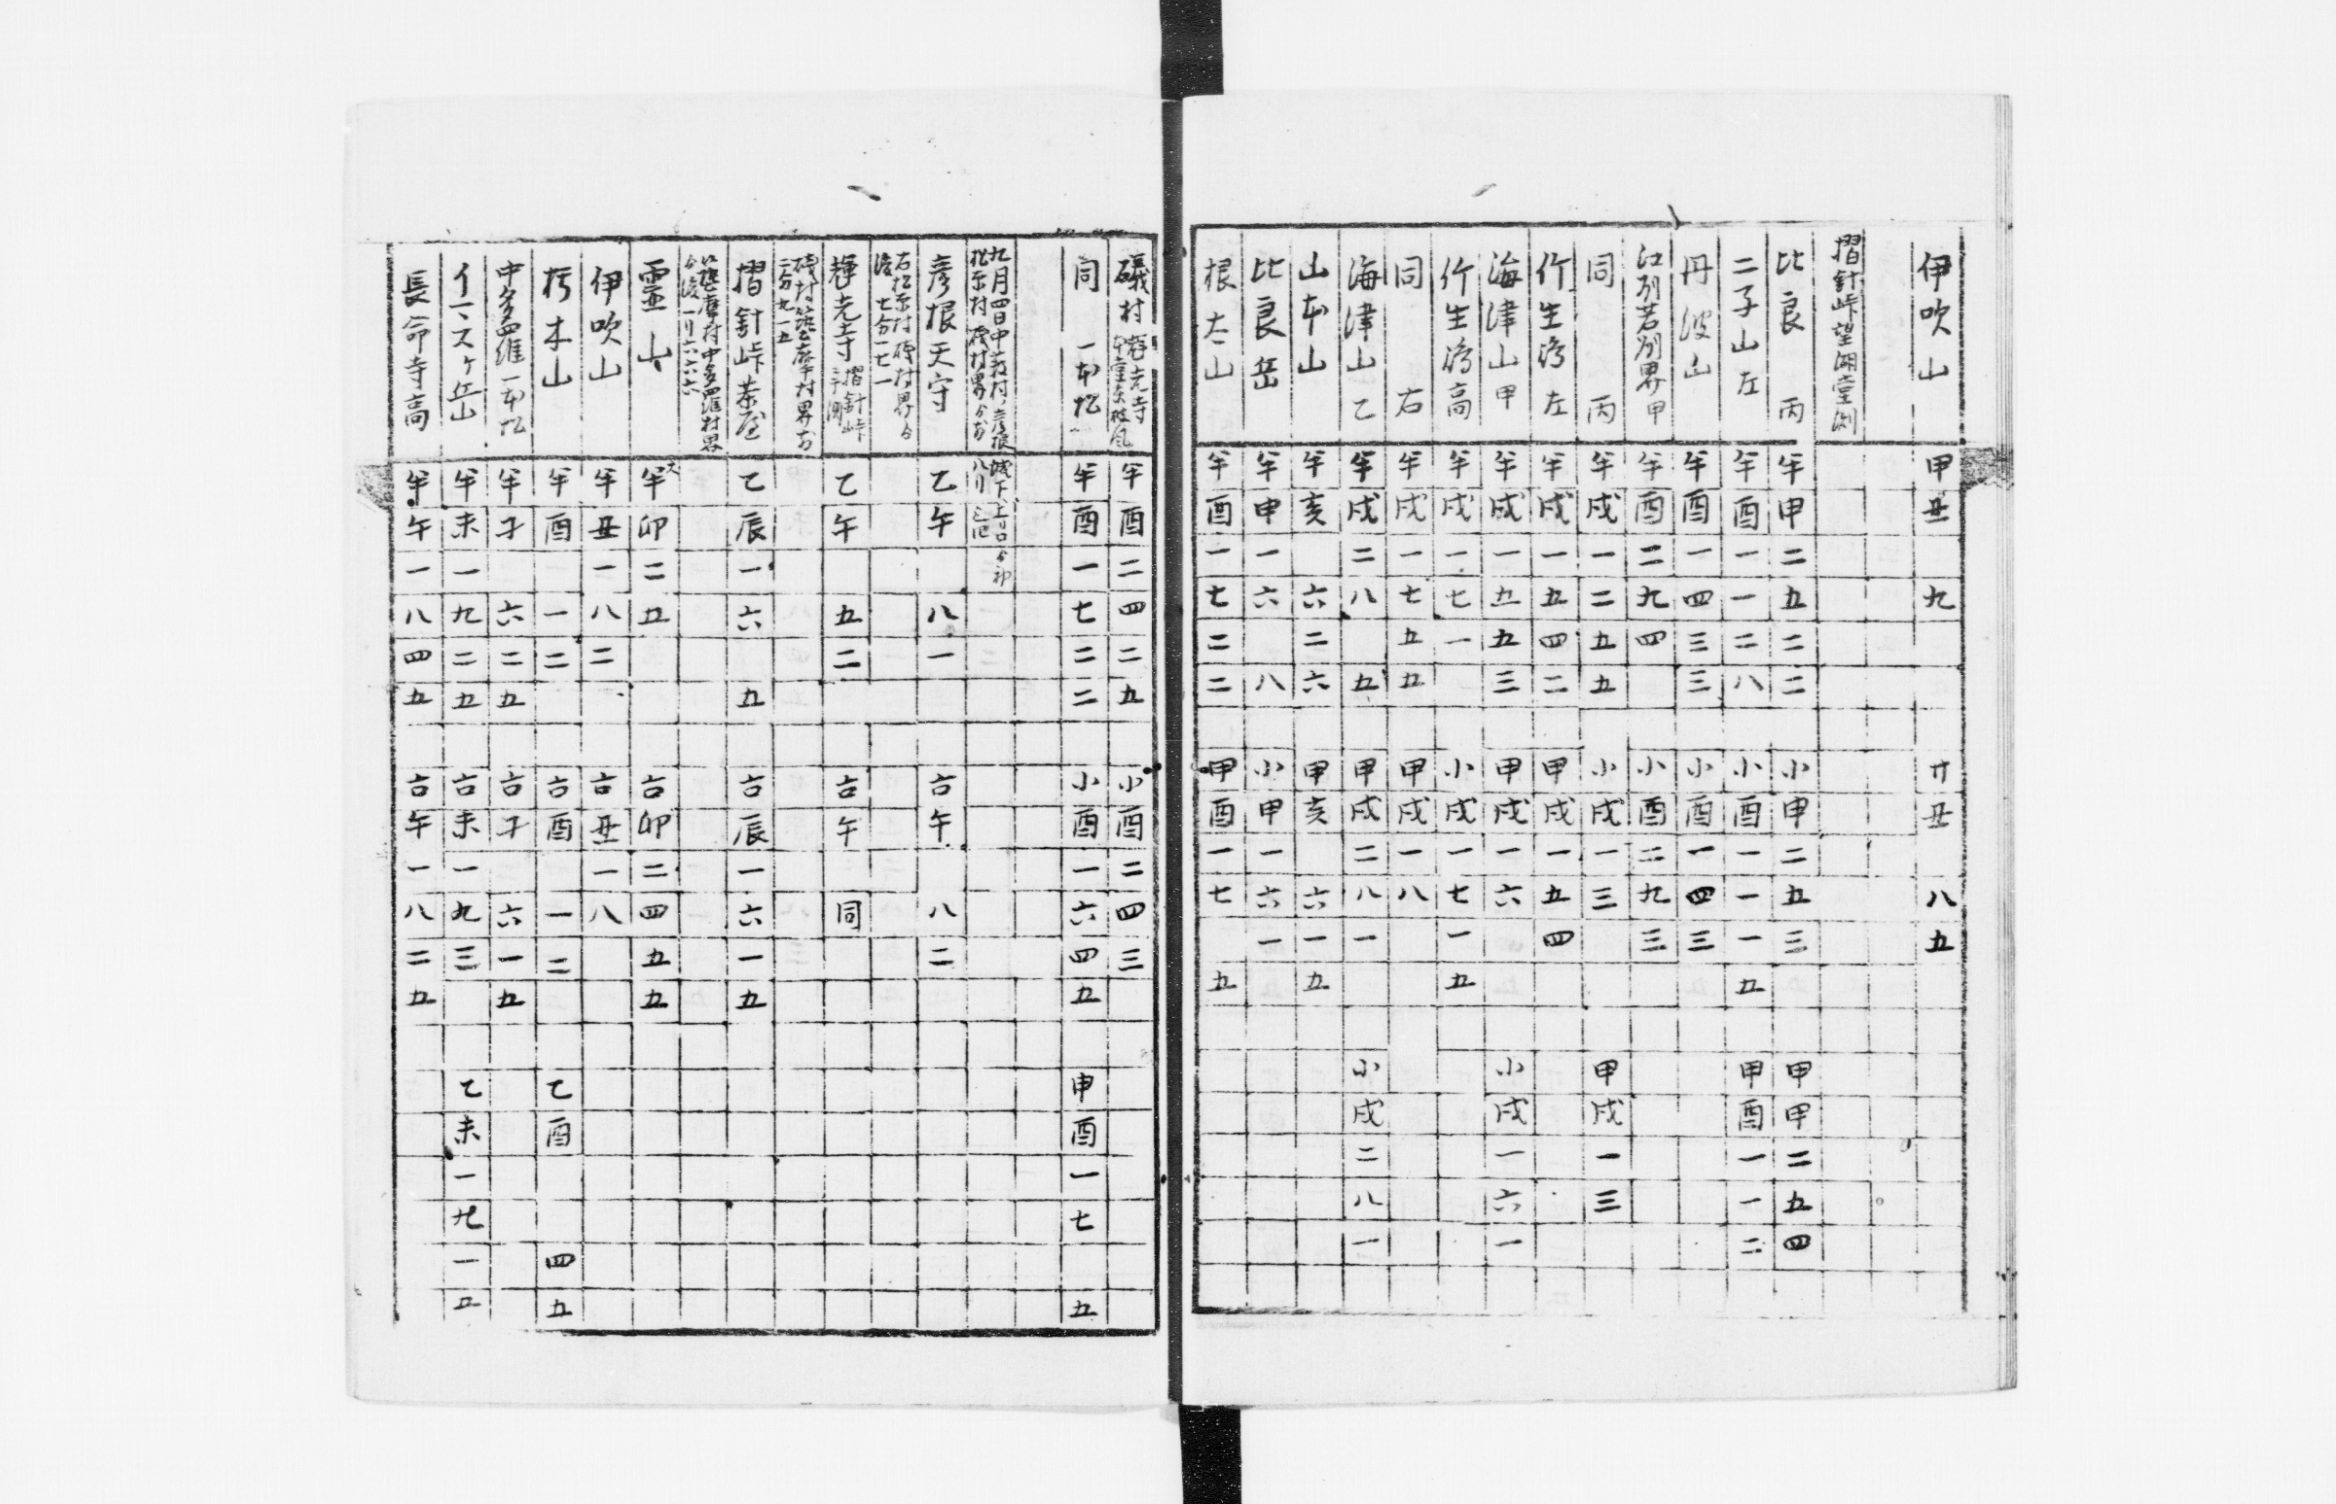 伊吹山 甲丑 九 廿丑 八五
摺針峠望湖堂測
比良 丙 半申二五二二 小申二五三 甲申二五四
二子山左 半酉一一二八 小酉一一一五 甲酉一一二
丹波山 半酉一四三三 小酉一四三
江刕若刕界甲 半酉二九四 小酉二九三
同 丙 半戌一二五五 小戌一三 甲戌一三
竹生島 左 半戌一五四二 甲戌一五四
海津山甲 半戌一五五三 甲戌一六 小戌一六一
竹生島高 半戌一七一 小戌一七一五
同 右 半戌一七五五 甲戌一八
海津山 乙 半戌二八 五 甲戌二八一 小戌二八一
山本山 半亥 六二六 甲亥 六一五
比良岳 半申一六 八 小申一六一
根太山 半酉一七二二 甲酉一七 五
礒村 半酉二四二五 小酉二四三
同 一本松 半酉一七二二 小酉一六四五 甲酉一七 五
九月四日中 村 彦根城下
松原村 礒村界
彦根天守 乙午 八一 吉午 八二
右松原村礒村界
七分一七一
輝光寺 摺針峠 乙午 五二 吉午 同
礒村 村界
二分九一五
摺針峠茶屋 乙辰一六 五 吉辰一六一五
村中多羅村界
一リ六六六
霊山 半卯二五 吉卯二四五五
伊吹山 半丑一八二 吉丑一八
朽木山 半酉 一二 吉酉 一二 乙酉 四五
中多羅一本松 半子 六二五 吉子 六一五
イヽスケ岳 半未一九二五 吉未一九三 乙未一九一五
長命寺高 半午一八四五 吉午一八二五